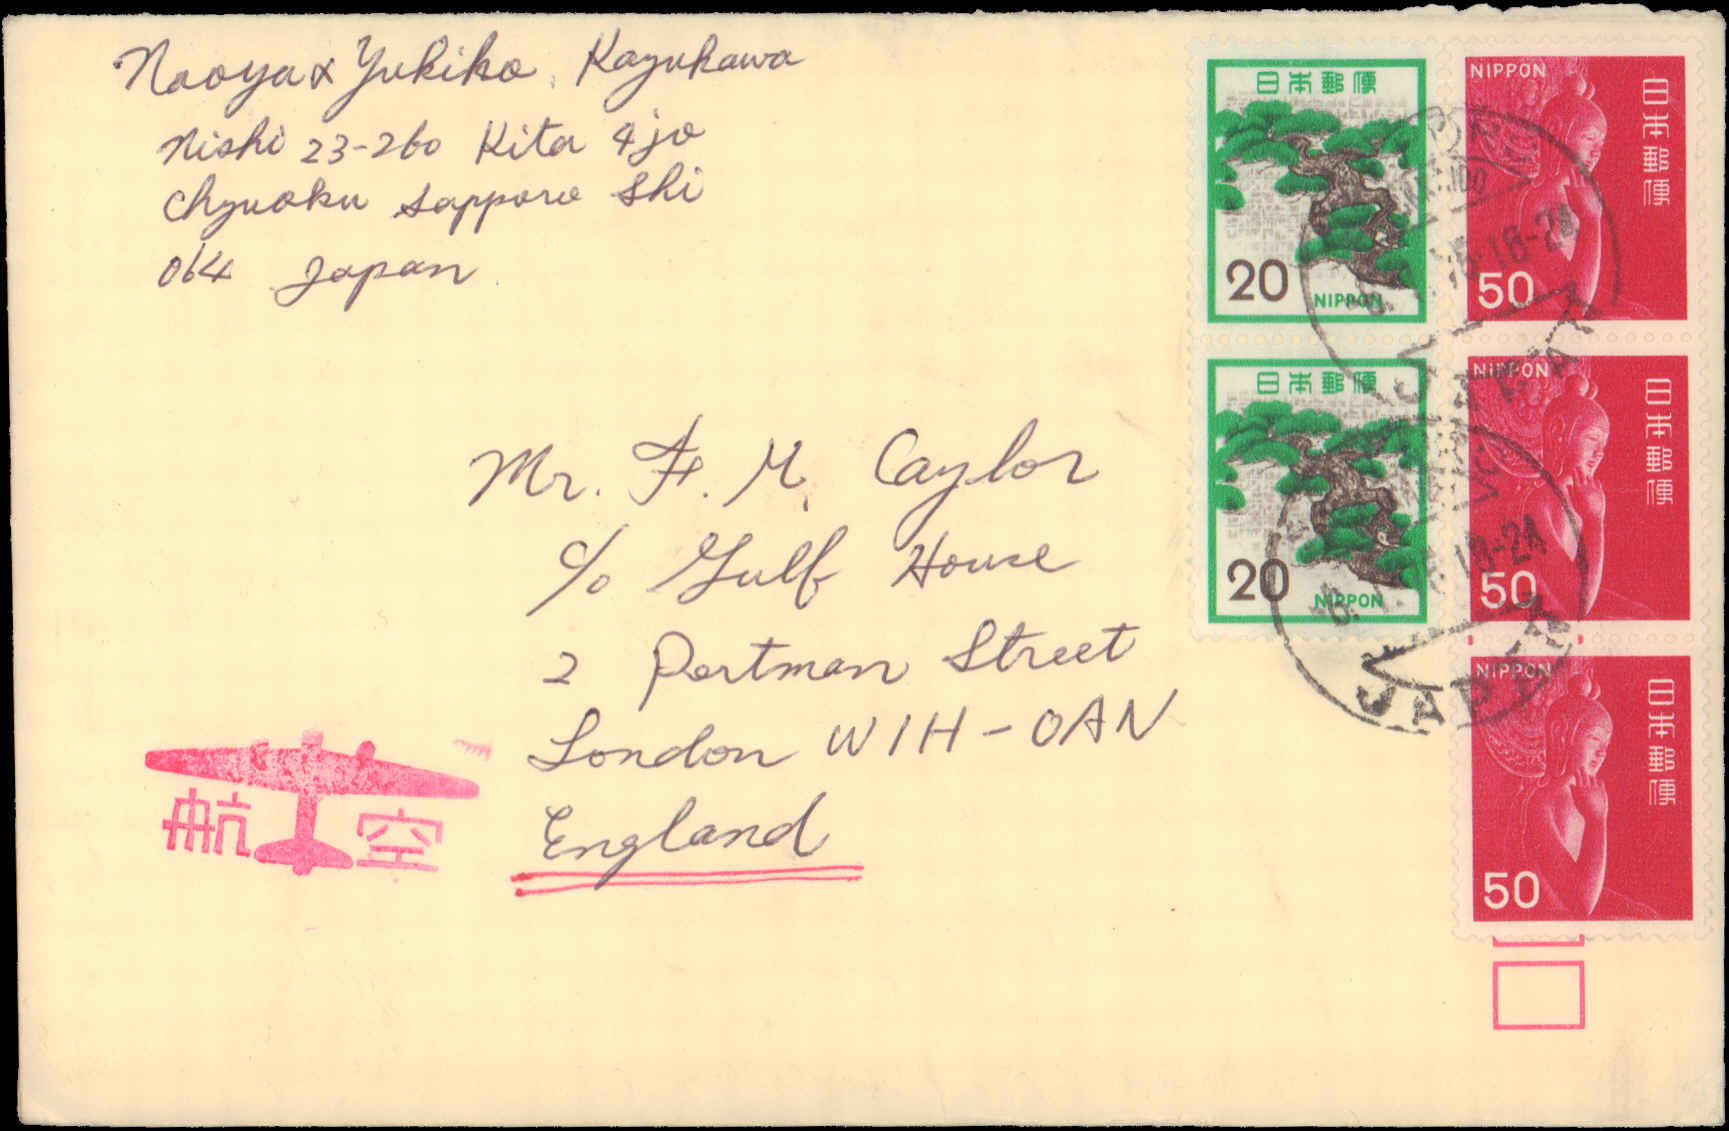 Naoya & Yukiko, Kazukawa
Nishi 23-260 Kita 4jo
Chyuoku Sapporo Shi
064 Japan
Mr. F. M. Caylor
c/o Gulf House
2 Portman Street
London W1H-0AN
England
航空
日本郵便
20
NIPPON
日本郵便
20
NIPPON
NIPPON
日本郵便
50
NIPPON
日本郵便
50
NIPPON
日本郵便
50
18-24
18-24
JAPAN